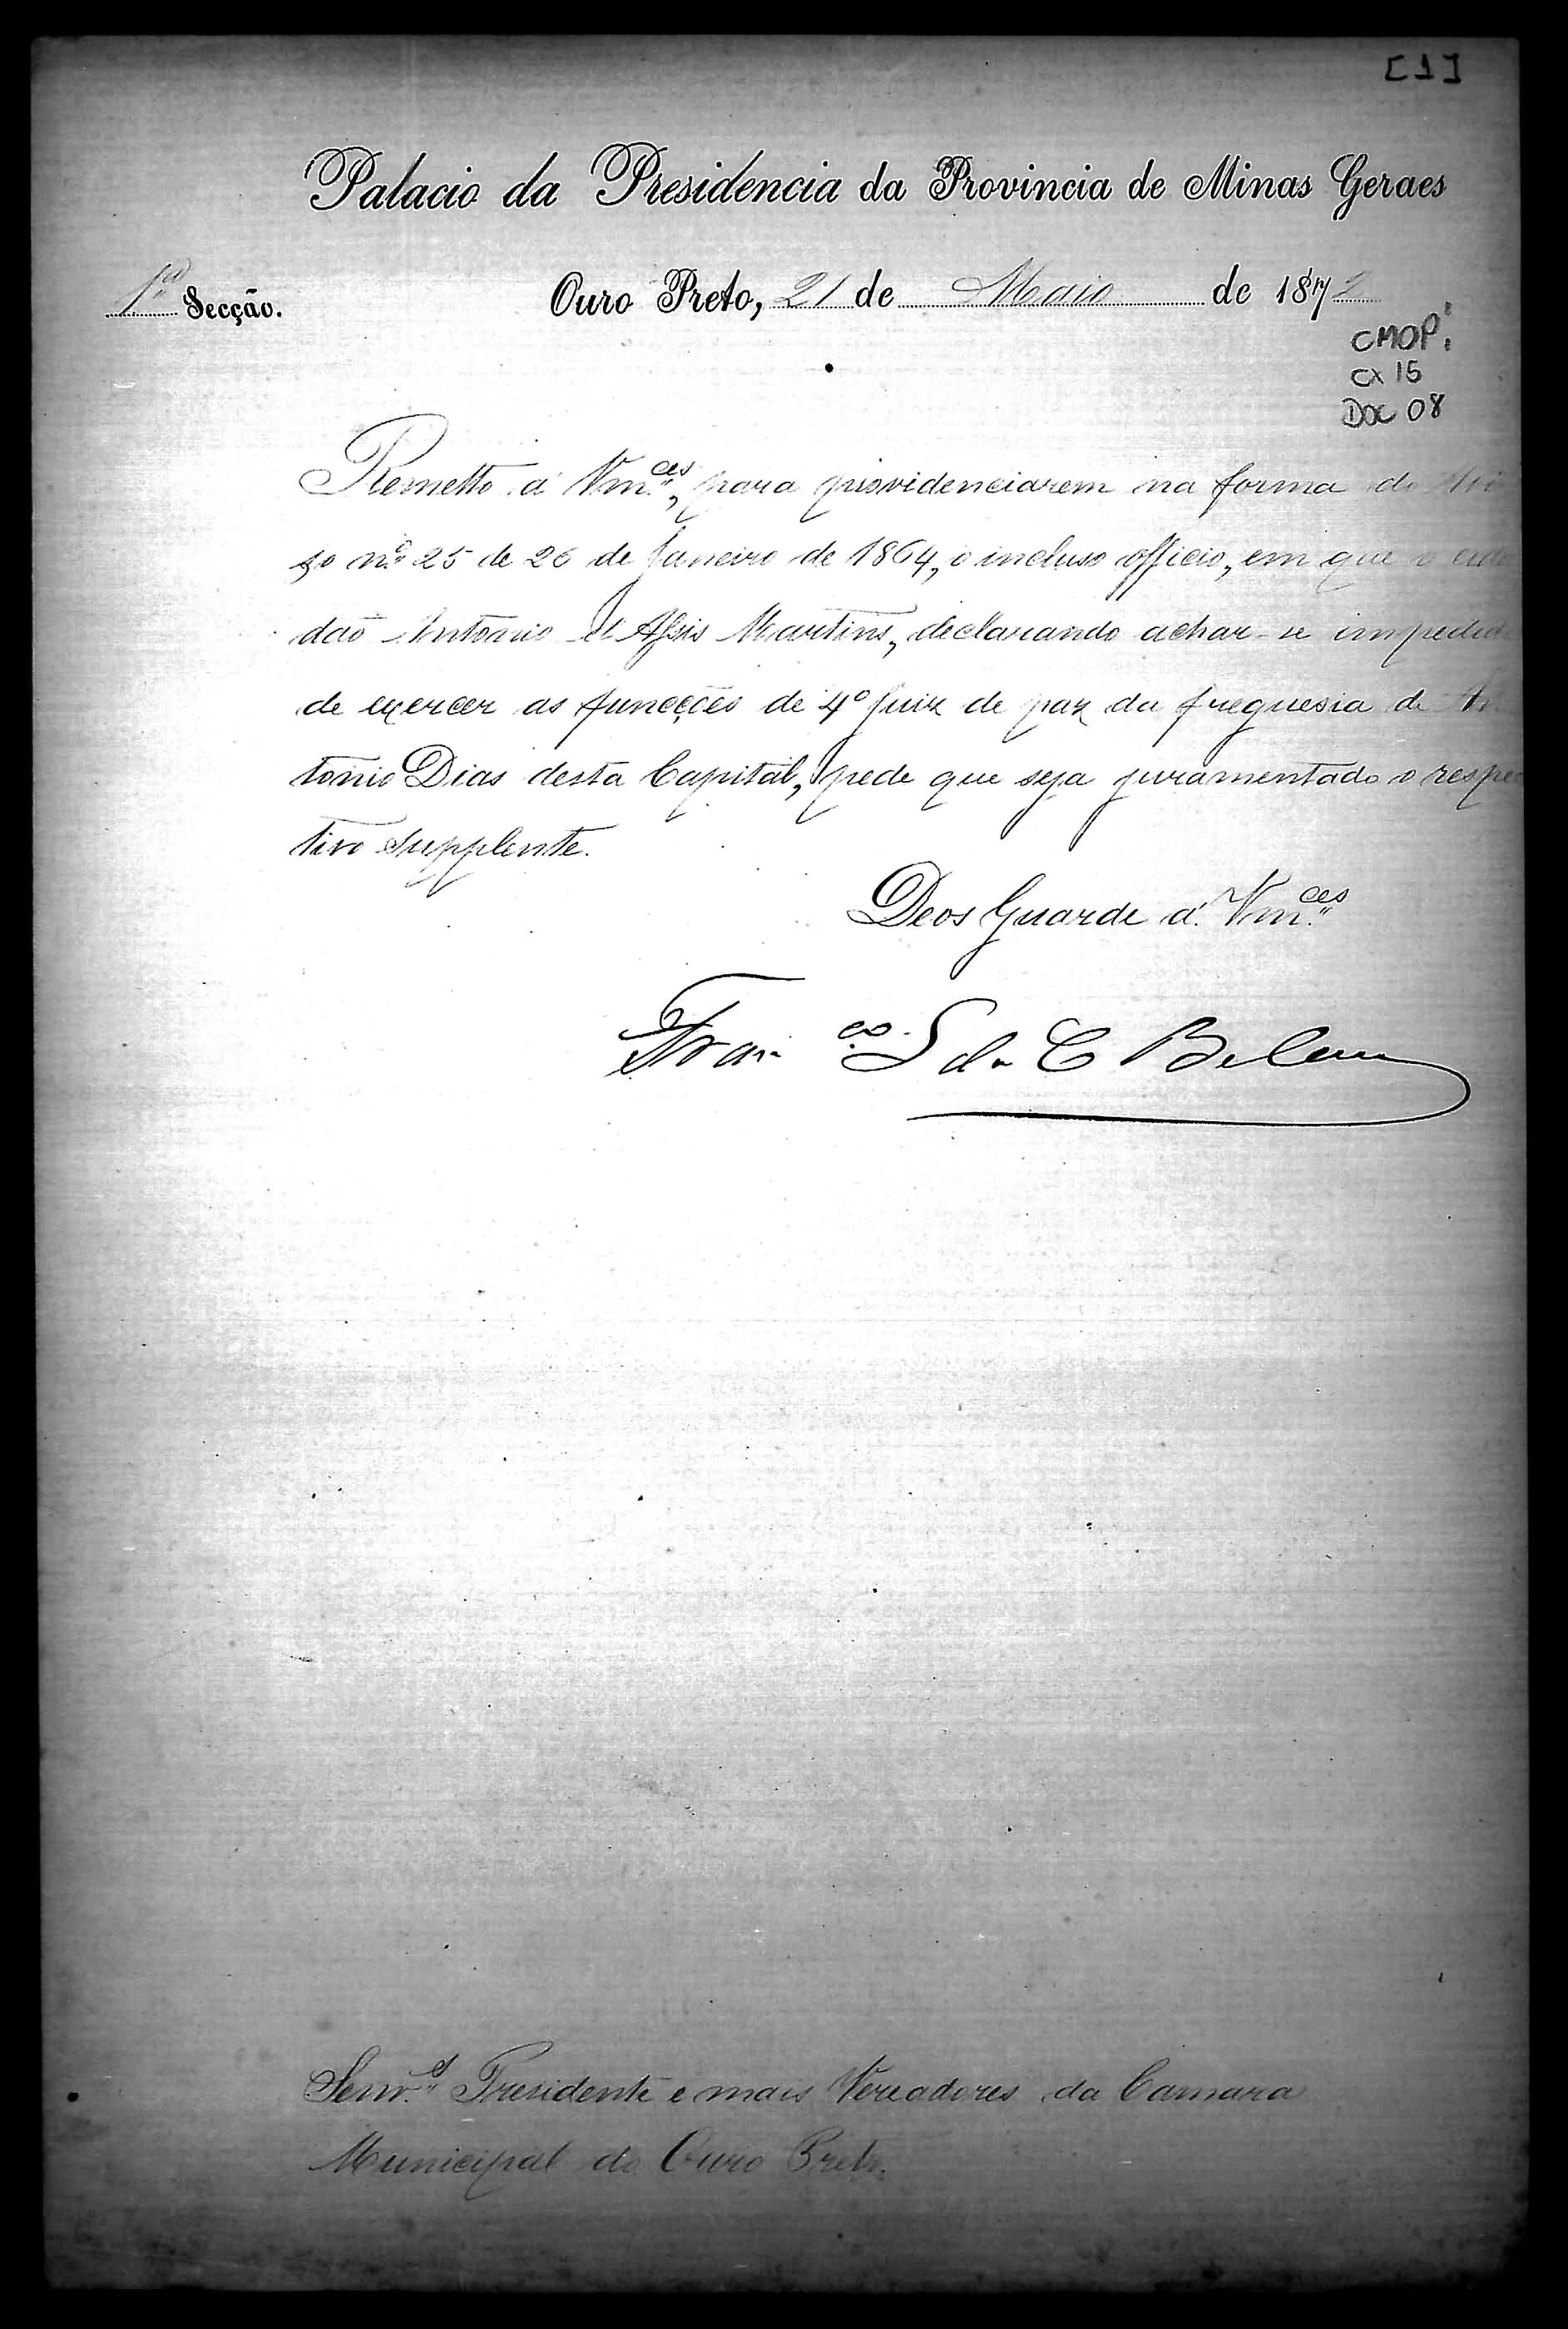 [1]
Palacio da Presidencia da Provincia de Minas Geraes
1.ª Secção.
Ouro Preto, 21 de Maio de 1872
CMOP.
CX 15
DOC 08
Remetto á Vm.ces, para providenciarem na forma do Avi
so n.º 25 de 26 de Janeiro de 1864, o incluso officio, em que o cida
dão Antonio de Assis Martins, declarando achar-se impedido
de exercer as funcções de 4º Juiz de paz da freguesia de An
tonio Dias desta Capital, pede que seja juramentado o respec
tivo supplente.
Deos Guarde á Vm.ces
Fran.co da C Belem
Senr.s Presidente e mais Vereadores da Camara
Municipal do Ouro Preto.